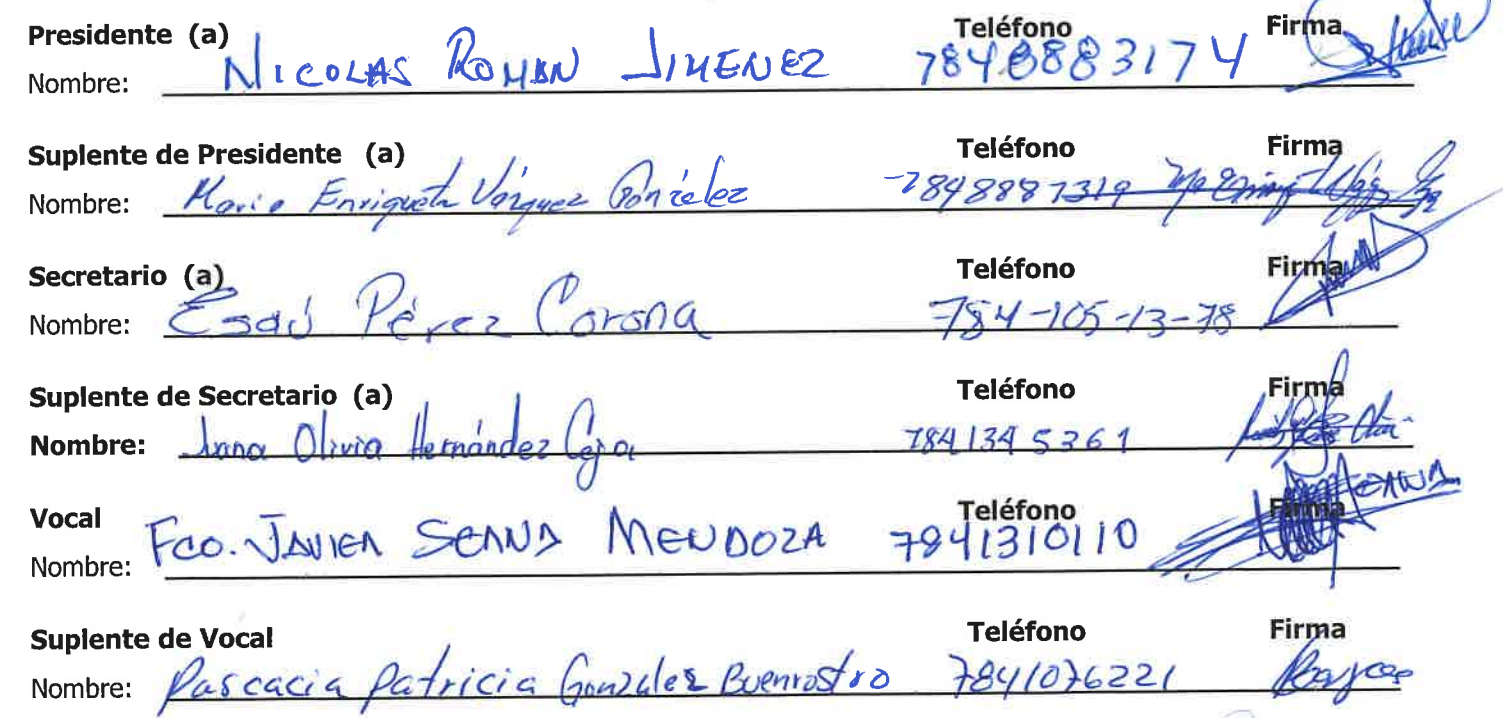 Presidente (a) Teléfono Firma
Nombre: NICOLAS ROMAN JIMENEZ 7848883174
Suplente de Presidente (a) Teléfono Firma
Nombre: Maria Enriqueta Vázquez González 7848887319
Secretario (a) Teléfono Firma
Nombre: Esaú Pérez Corona 784-105-13-78
Suplente de Secretario (a) Teléfono Firma
Nombre: Olivia Hernández Ceja 7841345361
Vocal Teléfono Firma
Nombre: Fco. JAVIER SERNA MENDOZA 7841310110
Suplente de Vocal Teléfono Firma
Nombre: Pascacia Patricia Gonzalez Buenrostro 7841076221